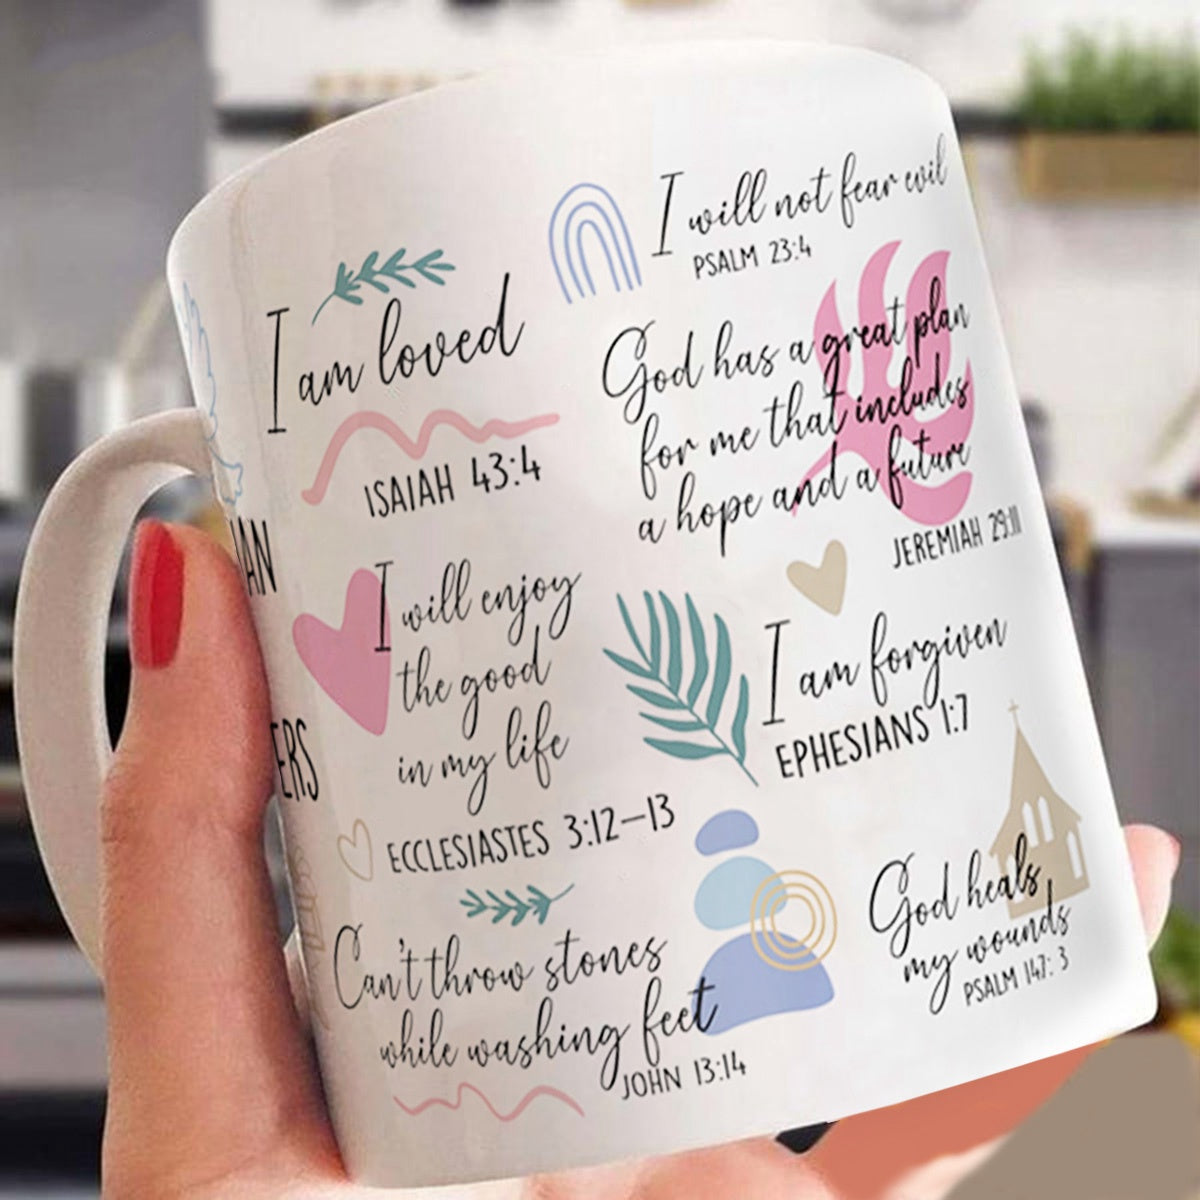 I will not fear evil
PSALM 23:4
I am loved
ISAIAH 43:4
God has a great plan
for me that includes
a hope and a future
JEREMIAH 29:11
I will enjoy
the good
in my life
ECCLESIASTES 3:12–13
I am forgiven
EPHESIANS 1:7
Can't throw stones
while washing feet
JOHN 13:14
God heals
my wounds
PSALM 147: 3